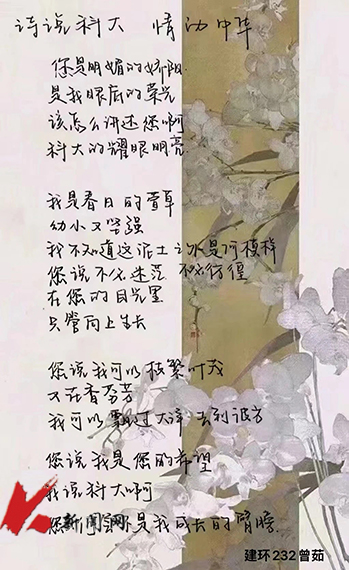 诗说科大 情动中华
您是明媚的娇阳
是我眼底的荣光
该怎么讲述您啊
科大的耀眼明亮
我是春日的萱草
幼小又坚强
我不知道这泥土之外是何模样
您说不必迷茫 不必彷徨
在您的目光里
只管向上生长
您说我可以枝繁叶茂
花香芬芳
我可以飘过大洋 去到彼方
您说我是您的希望
我说科大啊
您 是我成长的臂膀
新闻网
建环232曾茹